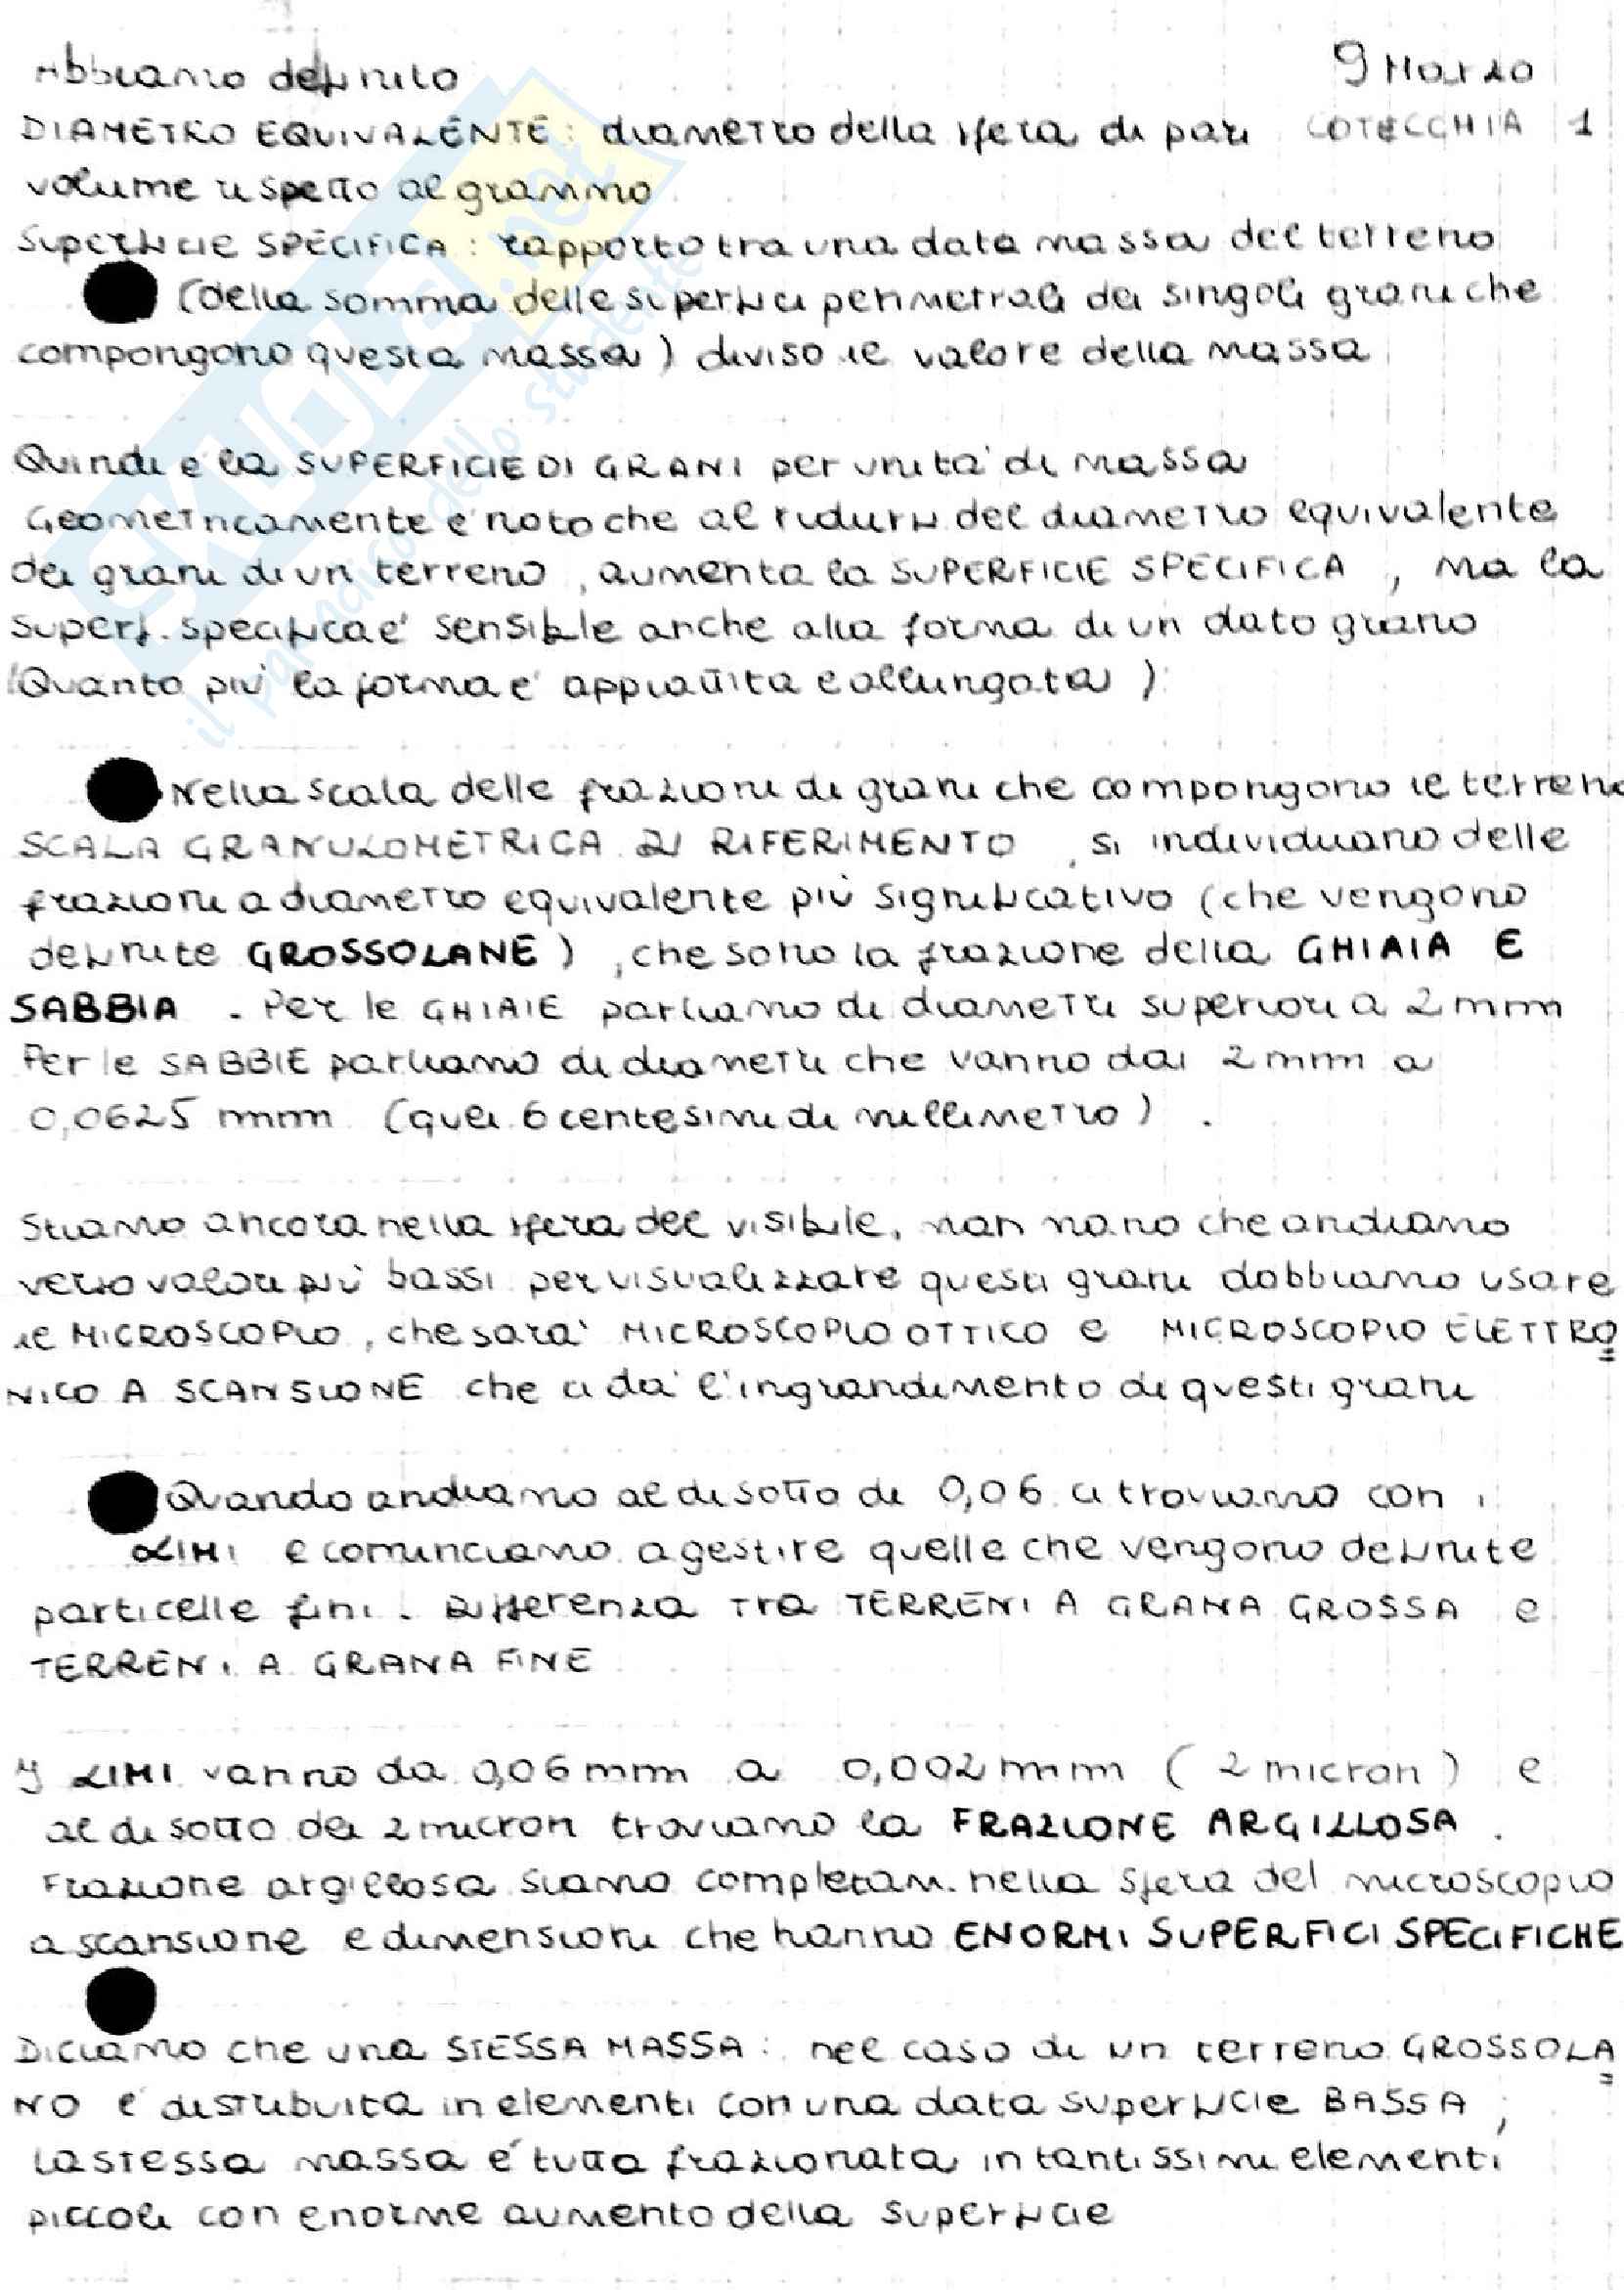 Abbiamo definito 9 Marzo
DIAMETRO EQUIVALENTE: diametro della sfera di pari COTECCHIA 1
volume rispetto al grammo
SUPERFICIE SPECIFICA: rapporto tra una data massa del terreno
(della somma delle superfici perimetrali dei singoli grani che
compongono questa massa) diviso il valore della massa
Quindi e' la SUPERFICIE DI GRANI per unita' di massa
Geometricamente e' noto che al ridursi del diametro equivalente
dei grani di un terreno, aumenta la SUPERFICIE SPECIFICA, ma la
superf. specifica e' sensibile anche alla forma di un dato grano
(Quanto piu' la forma e' appiattita e allungata)
Nella scala delle frazioni di grani che compongono il terreno
SCALA GRANULOMETRICA DI RIFERIMENTO, si individuano delle
frazioni a diametro equivalente più significativo (che vengono
definite GROSSOLANE), che sono la frazione della GHIAIA E
SABBIA. Per le GHIAIE parliamo di diametri superiori a 2mm
Per le SABBIE parliamo di diametri che vanno dai 2mm a
0,0625 mm (quei 6 centesimi di millimetro).
Stiamo ancora nella sfera del visibile, man mano che andiamo
verso valori piu' bassi per visualizzare questi grani dobbiamo usare
il MICROSCOPIO, che sara' MICROSCOPIO OTTICO e MICROSCOPIO ELETTRO=
NICO A SCANSIONE che ci da' l'ingrandimento di questi grani
Quando andiamo al di sotto di 0,06 ci troviamo con i
LIMI e cominciamo a gestire quelle che vengono definite
particelle fini. Differenza tra TERRENI A GRANA GROSSA e
TERRENI A GRANA FINE
I LIMI vanno da 0,06mm a 0,002mm (2 micron) e
al di sotto dei 2 micron troviamo la FRAZIONE ARGILLOSA.
Frazione argillosa siamo completam. nella sfera del microscopio
a scansione e dimensioni che hanno ENORMI SUPERFICI SPECIFICHE
Diciamo che una STESSA MASSA: nel caso di un terreno GROSSOLA=
NO e' distribuita in elementi con una data superficie BASSA;
la stessa massa e' tutta frazionata in tantissimi elementi
piccoli con enorme aumento della superficie
SKUOLA.net
il paradiso dello studente